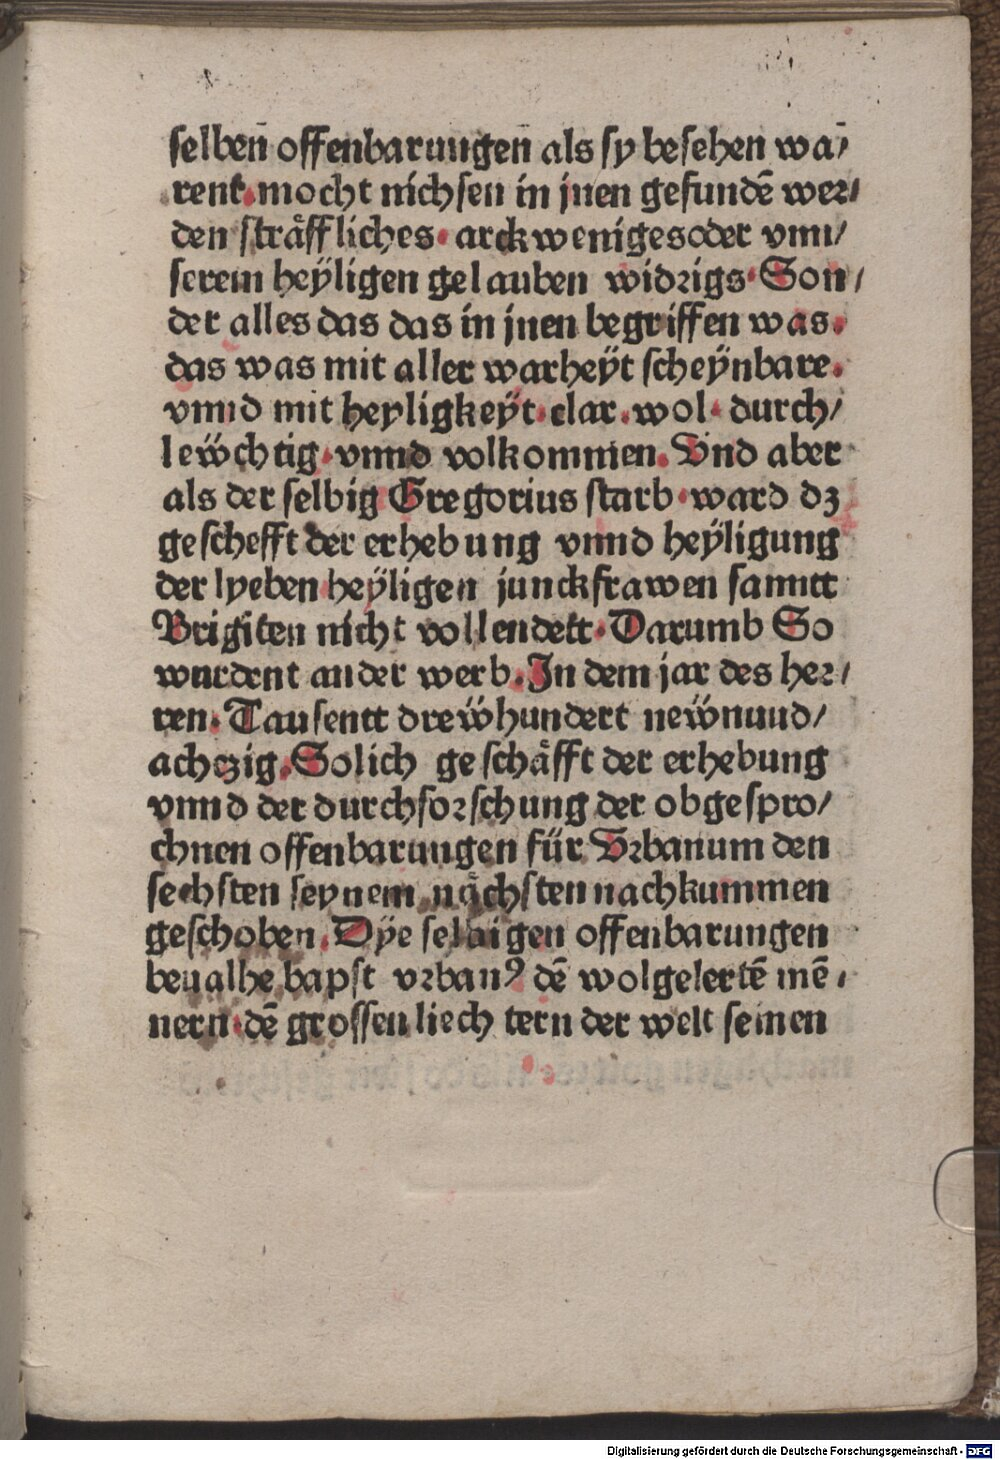 selbeñ offenbarungeñ als sy besehen wā/
rent. mocht nichsen in jnen gefundē wer/
den sträffliches. arckweniges oder vnn/
serem heÿligen gelauben widrigs. Son/
der alles das das in jnen begriffen was.
das was mit aller warheÿt scheÿnbare.
vnnd mit heyligkeÿt. clar. wol. durch/
leẅchtig. vnnd volkommen. Vnd aber
als der selbig Gregorius starb. ward dz
geschefft der erhebung vnnd heÿligung
der lyeben heÿligen junckfrawen sanntt
Brigiten nicht vollendett. Darumb So
wurdent ander werb. In dem jar des her/
ren. Tausentt dreẅhundert neẅnund/
achczig. Solich geschäfft der erhebung
vnnd der durchforschung der obgespro/
chnen offenbarungen für Vrbanum den
sechsten seynem nächsten nachkummen
geschoben. Dÿe selbigen offenbarungen
beualhe bapst vrbanꝰ dē wolgelertē mē/
nern. dē grossen liechtern der welt seinen
Digitalisierung gefördert durch die Deutsche Forschungsgemeinschaft - DFG